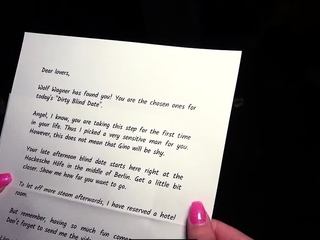 Dear lovers,
Wolf Wagner has found you! You are the chosen ones for
today's "Dirty Blind Date".
Angel, I know, you are taking this step for the first time
in your life. Thus I picked a very sensitive man for you.
However, this does not mean that Gino will be shy.
Your late afternoon blind date starts here right at the
Hackesche Höfe in the middle of Berlin. Get a little bit
closer, show me how far you want to go.
To let off more steam afterwards, I have reserved a hotel
room.
But remember, having so much fun comes
Don't forget to send me the